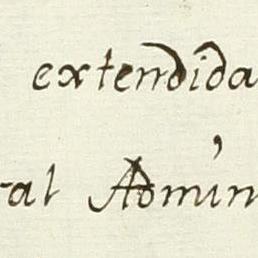 extendida
tal Admin